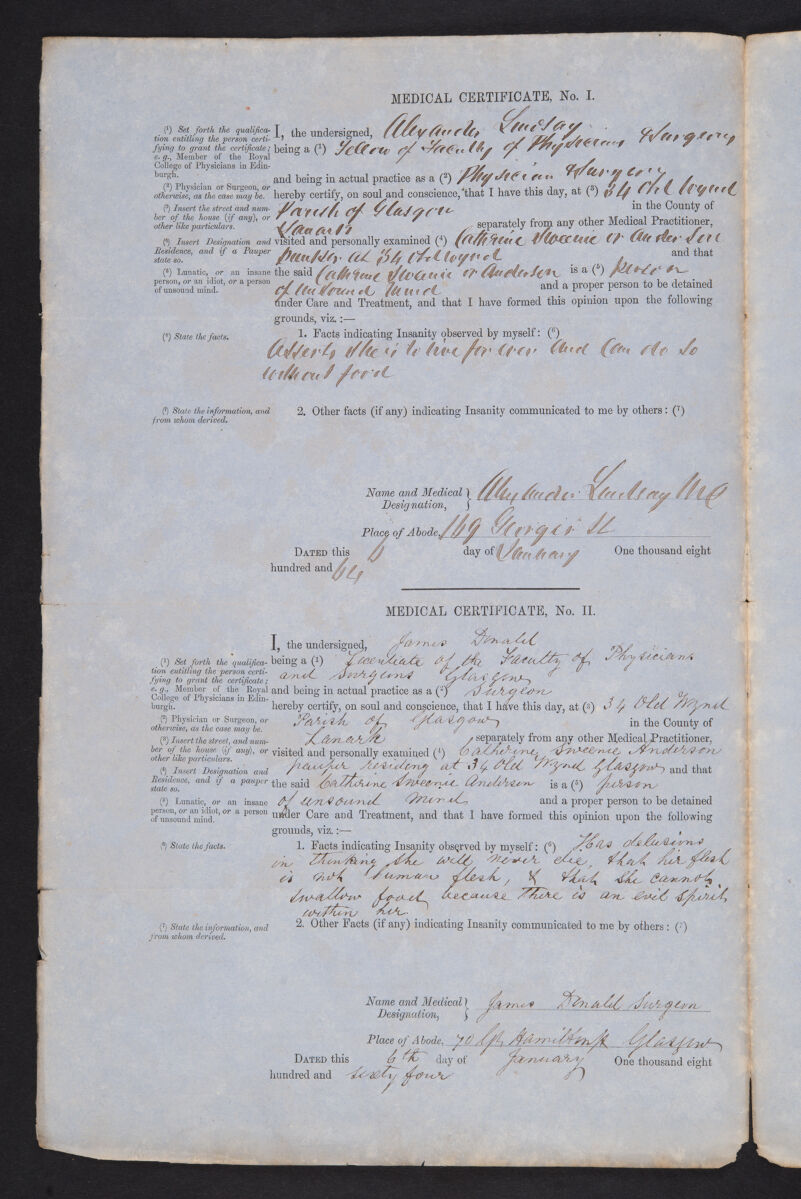 MEDICAL CERTIFICATE, No. I.
(¹) Set forth the qualifica-
tion entitling the person certi-
fying to grant the certificate;
e. g., Member of the Royal
College of Physicians in Edin-
burgh.
(²) Physician or Surgeon, or
otherwise, as the case may be.
(³) Insert the street and num-
ber of the house (if any), or
other like particulars.
(⁴) Insert Designation and
Residence, and if a Pauper
state so.
(⁵) Lunatic, or an insane
person, or an idiot, or a person
of unsound mind.
(⁶) State the facts.
(⁷) State the information, and
from whom derived.
I, the undersigned, Alexander Lindsay
being a (¹) Fellow of Faculty of Physicians & Surgeons
and being in actual practice as a (²) Physician & Surgeon
hereby certify, on soul and conscience, that I have this day, at (³) 34 Old Wynd
Parish of Glasgow in the County of
Lanark separately from any other Medical Practitioner,
visited and personally examined (⁴) Cathrine Sweenie or Anderson
pauper at 34 Old Wynd and that
the said Cathrine Sweenie or Anderson is a (⁵) person
of unsound mind and a proper person to be detained
under Care and Treatment, and that I have formed this opinion upon the following
grounds, viz.:—
1. Facts indicating Insanity observed by myself: (⁶)
Asserts she is to live for ever and can do so
without food
2. Other facts (if any) indicating Insanity communicated to me by others: (⁷)
Name and Medical Designation, Alexander Lindsay
Place of Abode, 169 George St
DATED this 6 day of January One thousand eight
hundred and 64
MEDICAL CERTIFICATE, No. II.
(¹) Set forth the qualifica-
tion entitling the person certi-
fying to grant the certificate;
e. g., Member of the Royal
College of Physicians in Edin-
burgh.
(²) Physician or Surgeon, or
otherwise, as the case may be.
(³) Insert the street, and num-
ber of the house (if any), or
other like particulars.
(⁴) Insert Designation and
Residence, and if a pauper
state so.
(⁵) Lunatic, or an insane
person, or an idiot, or a person
of unsound mind.
(⁶) State the facts.
(⁷) State the information, and
from whom derived.
I, the undersigned, James Donald
being a (¹) Licentiate of the Faculty of Physicians
and Surgeons Glasgow
and being in actual practice as a (²) Surgeon
hereby certify, on soul and conscience, that I have this day, at (³) 34 Old Wynd
Parish of Glasgow in the County of
Lanark separately from any other Medical Practitioner,
visited and personally examined (⁴) Catherine Sweenie Anderson
pauper residing at 34 Old Wynd Glasgow and that
the said Catherine Sweenie Anderson is a (⁵) person
of unsound mind and a proper person to be detained
under Care and Treatment, and that I have formed this opinion upon the following
grounds, viz.:—
1. Facts indicating Insanity observed by myself: (⁶) Has delusions
in thinking she will never die, that her flesh
is not human flesh, & that she cannot
swallow food because there is an evil spirit
within her
2. Other Facts (if any) indicating Insanity communicated to me by others: (⁷)
Name and Medical Designation, James Donald Surgeon
Place of Abode, 70 Gt Hamilton St Glasgow
DATED this 6th day of January One thousand eight
hundred and sixty four